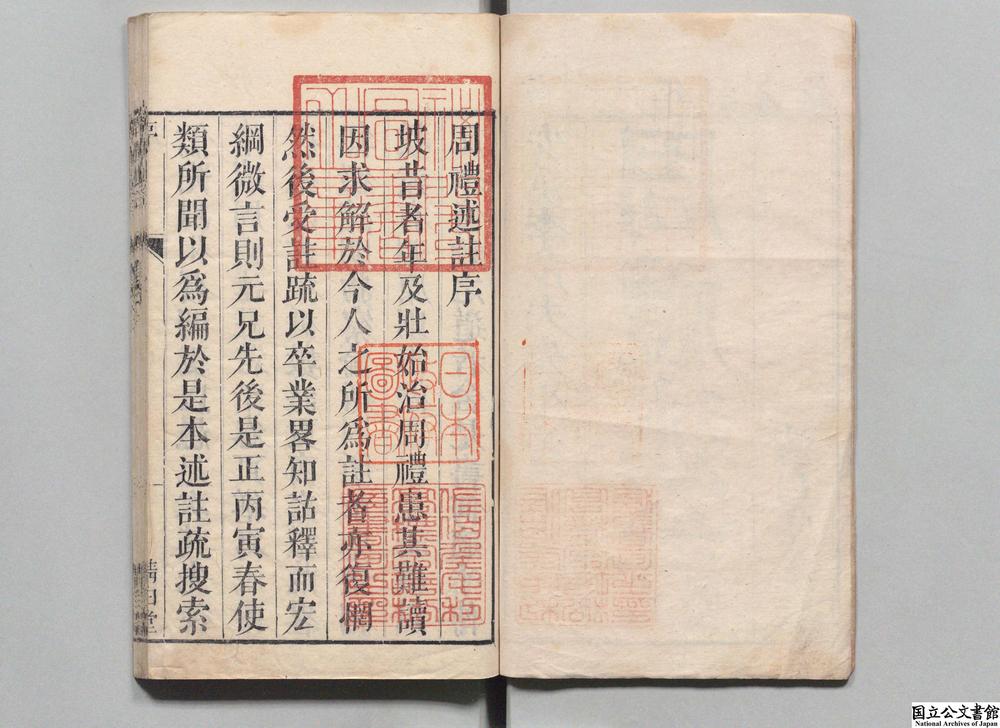 周禮述註序
坡昔者年及壯始治周禮患其難讀
因求解於今人之所爲註者亦復惘
然後受註疏以卒業畧知詁釋而宏
綱微言則元兄先後是正丙寅春使
類所聞以爲編於是本述註疏搜索
日本
政府
圖書
佐伯侯毛利
高標字培松
藏書畫之印
国立公文書館
National Archives of Japan